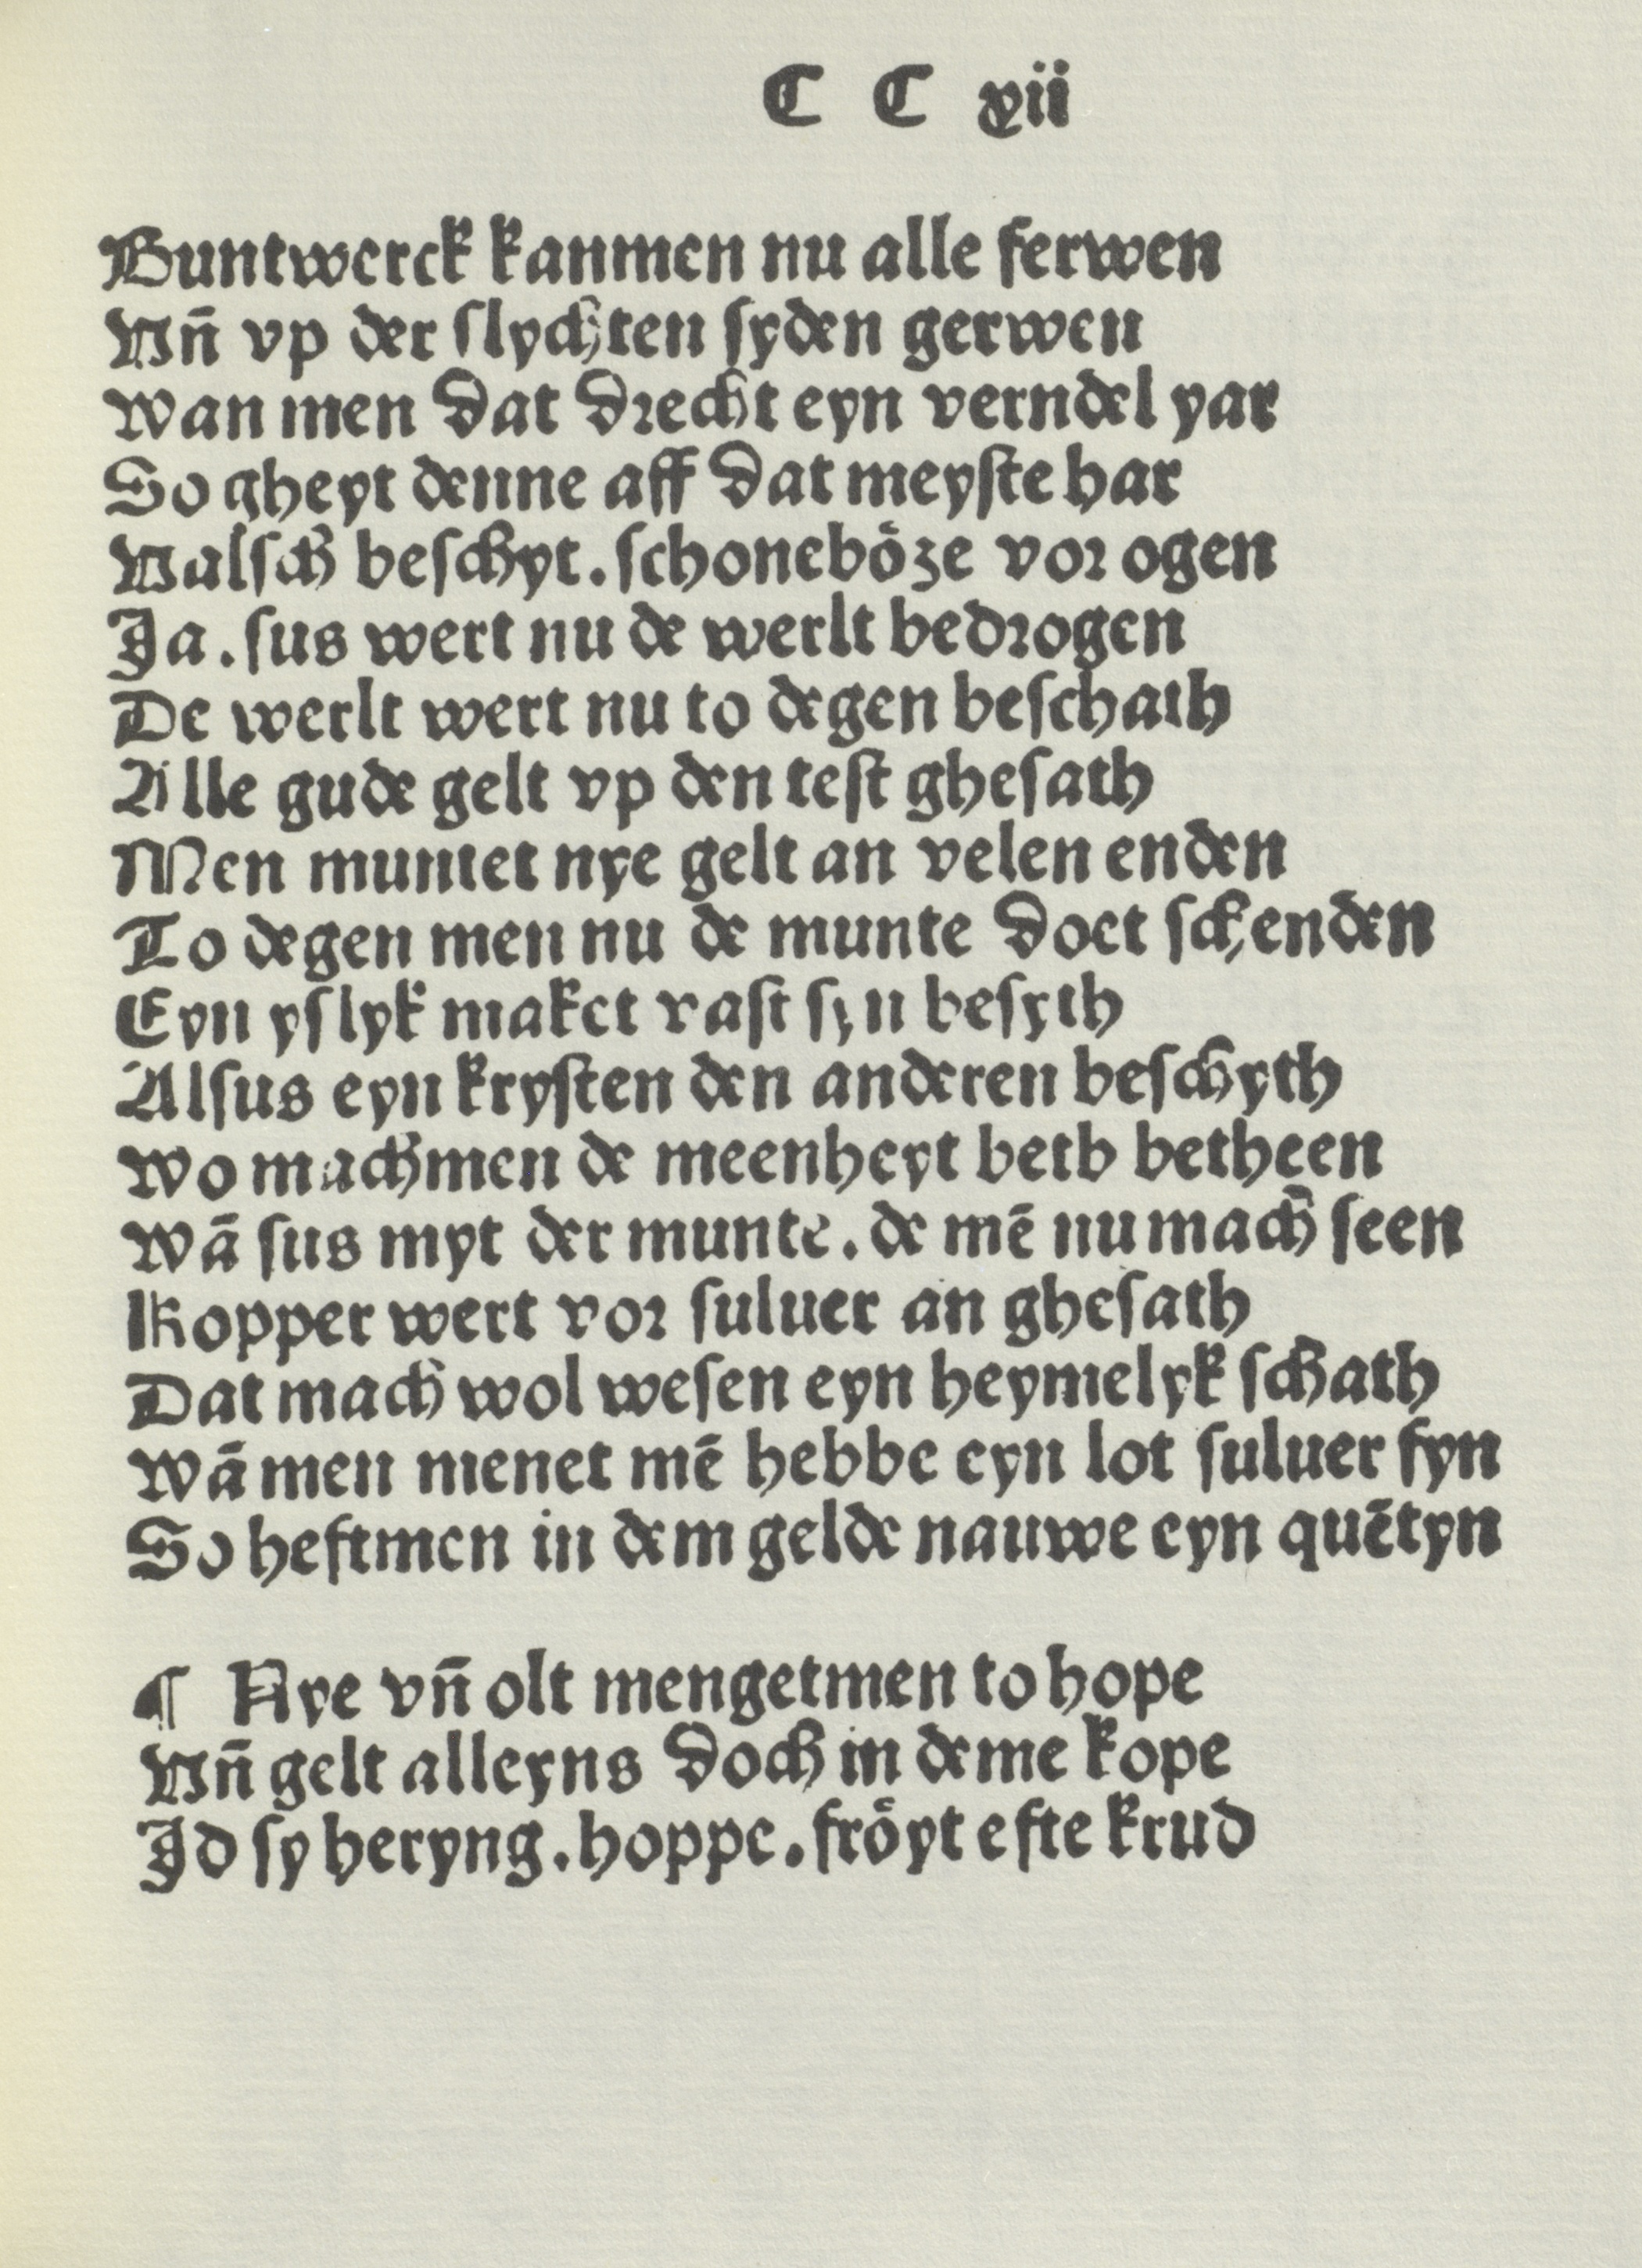 C C xii
Buntwerck kanmen nu alle ferwen
Vñ vp der ſlychten ſyden gerwen
Wan men dat drecht eyn verndel yar
So gheyt denne aff dat meyſte har
Valſch beſchyt. ſchoneboͤze vor ogen
Ja. ſus wert nu de werlt bedrogen
De werlt wert nu to degen beſchath
Alle gude gelt vp den teſt gheſath
Men muntet nye gelt an velen enden
To degen men nu de munte doet ſchenden
Eyn yſlyk maket vaſt ſyn beſyth
Alſus eyn kryſten den anderen beſchyth
Wo machmen de meenheyt beth betheen
Wā ſus myt der munte. de mē nu mach ſeen
Kopper wert vor ſuluer an gheſath
Dat mach wol weſen eyn heymelyk ſchath
Wā men menet mē hebbe eyn lot ſuluer fyn
So heftmen in dem gelde nauwe eyn quētyn
¶ Nye vñ olt mengetmen to hope
Vñ gelt alleyns doch in deme kope
Jd ſy heryng. hoppe. froͤyt efte krud